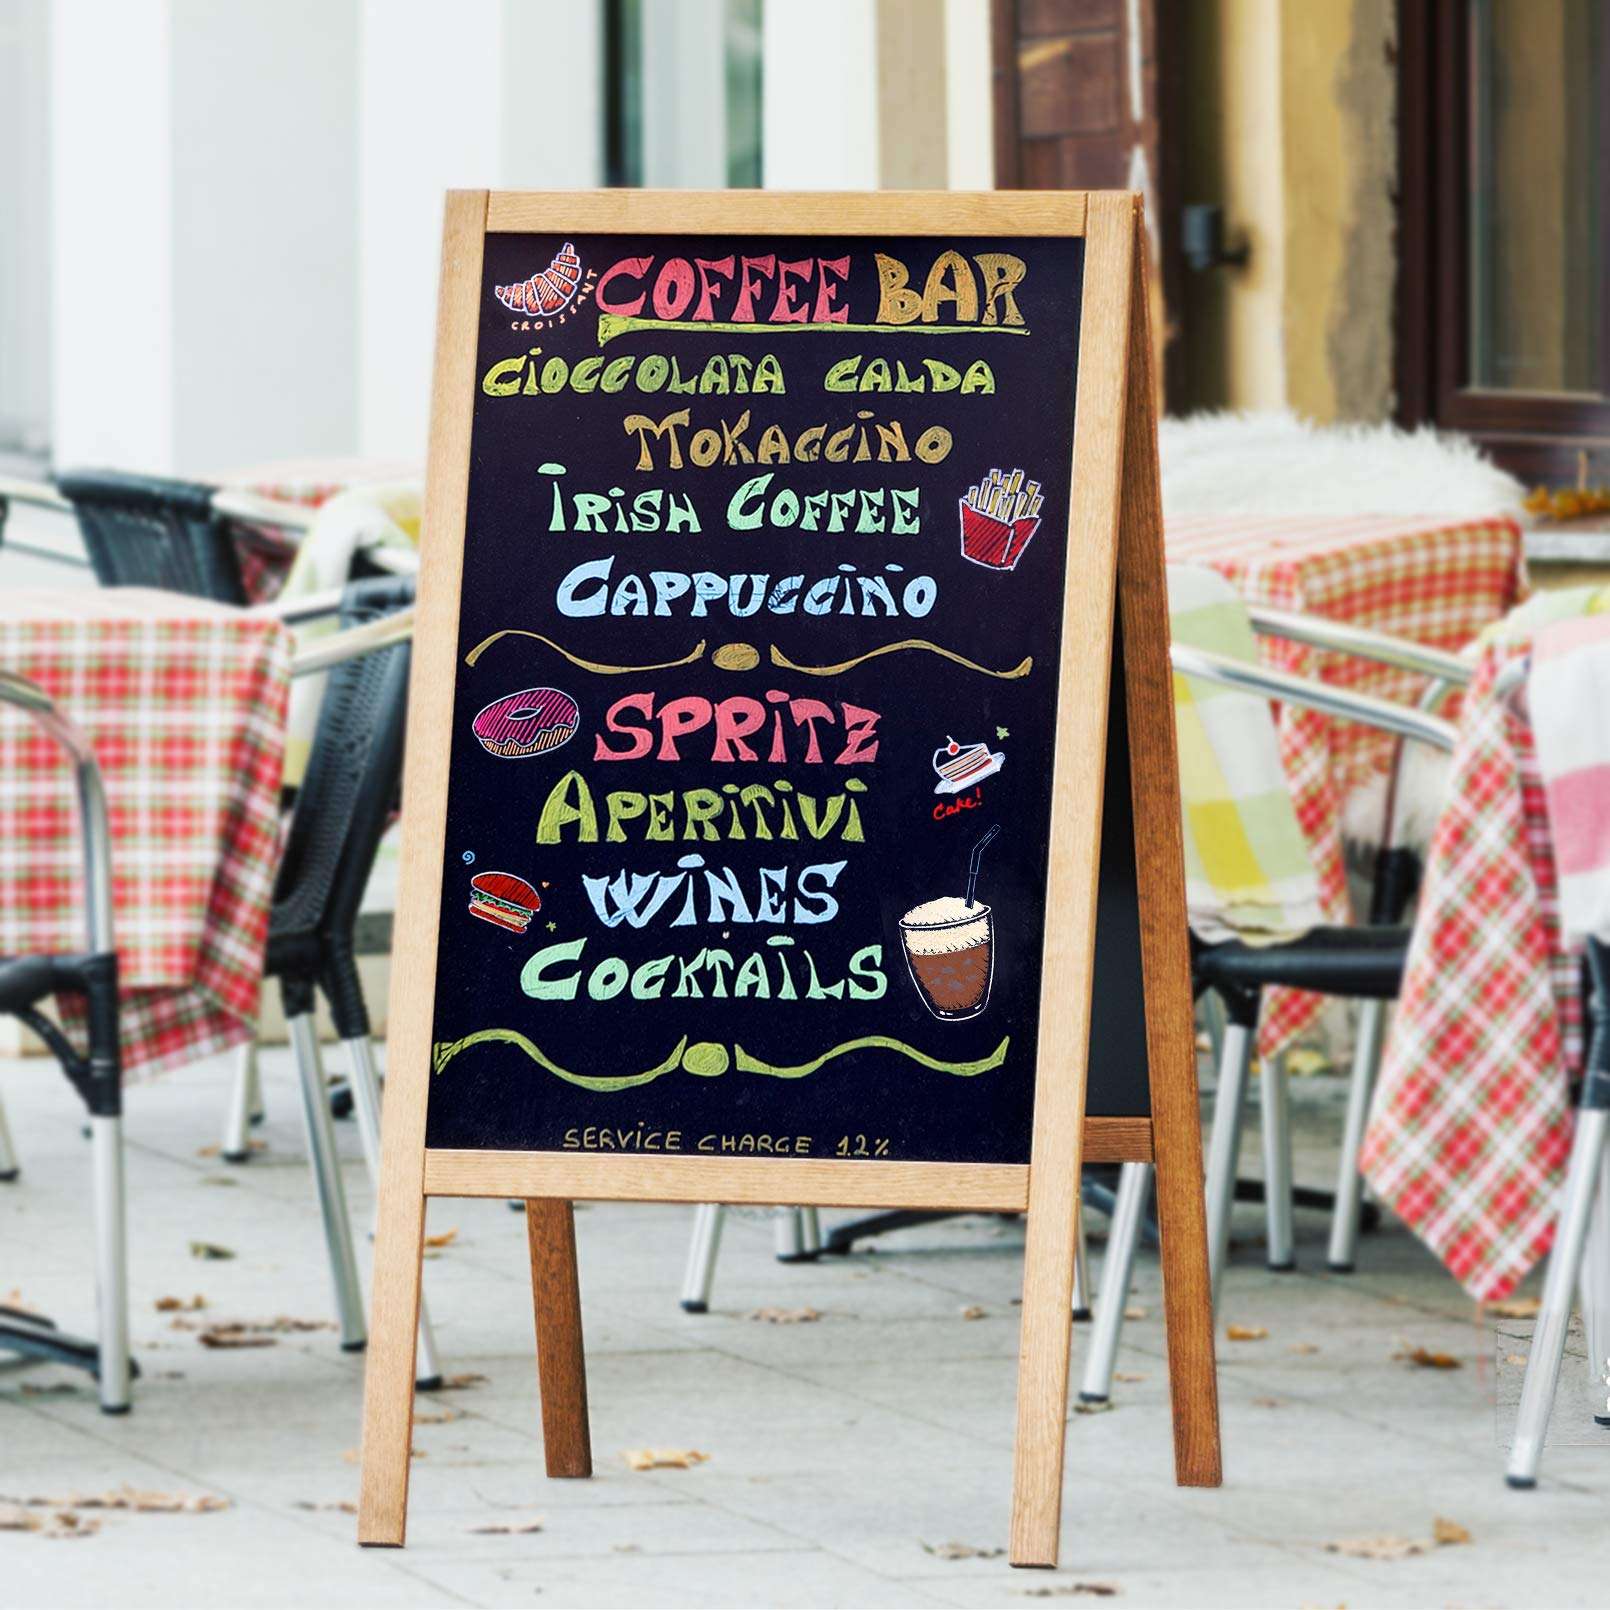 CROISSANT
COFFEE BAR
CIOCCOLATA CALDA
MOKACCINO
IRISH COFFEE
CAPPUCCINO
SPRITZ
Cake!
APERITIVI
WINES
COCKTAILS
SERVICE CHARGE 12%